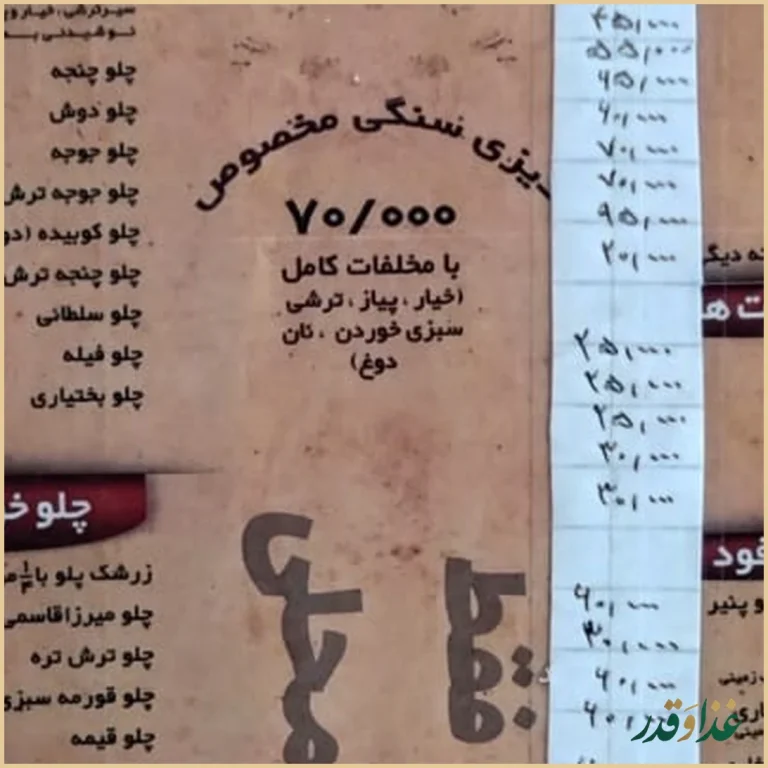 سیرترشی، خیار
نوشیدنی
چلو چنجه
چلو دوش
چلو جوجه
چلو جوجه ترش
چلو کوبیده (دو
چلو چنجه ترش
چلو سلطانی
چلو فیله
چلو بختیاری
چلو خ
زرشک پلو با
چلو میرزاقاسمی
چلو ترش تره
چلو قورمه سبزی
چلو قیمه
دیزی سنگی مخصوص
۷۰/۰۰۰
با مخلفات کامل
(خیار، پیاز، ترشی
سبزی خوردن، نان
دوغ)
فقط
محل
۵۵,۰۰۰
۶۵,۰۰۰
۶۰,۰۰۰
۷۰,۰۰۰
۷۰,۰۰۰
۹۵,۰۰۰
۲۰,۰۰۰
۲۵,۰۰۰
۲۵,۰۰۰
۲۵,۰۰۰
۳۰,۰۰۰
۳۰,۰۰۰
۶۰,۰۰۰
۳۰,۰۰۰
۶۰,۰۰۰
ه دیگ
ت ه
فود
و پنیر
زمینی
غذا و قدر